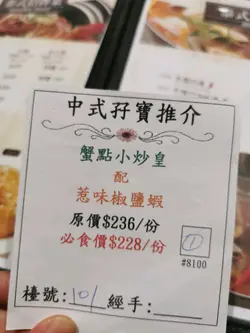 中式孖寶推介
蟹點小炒皇
配
惹味椒鹽蝦
原價$236/份
必食價$228/份
1
#8100
檯號:101 經手: